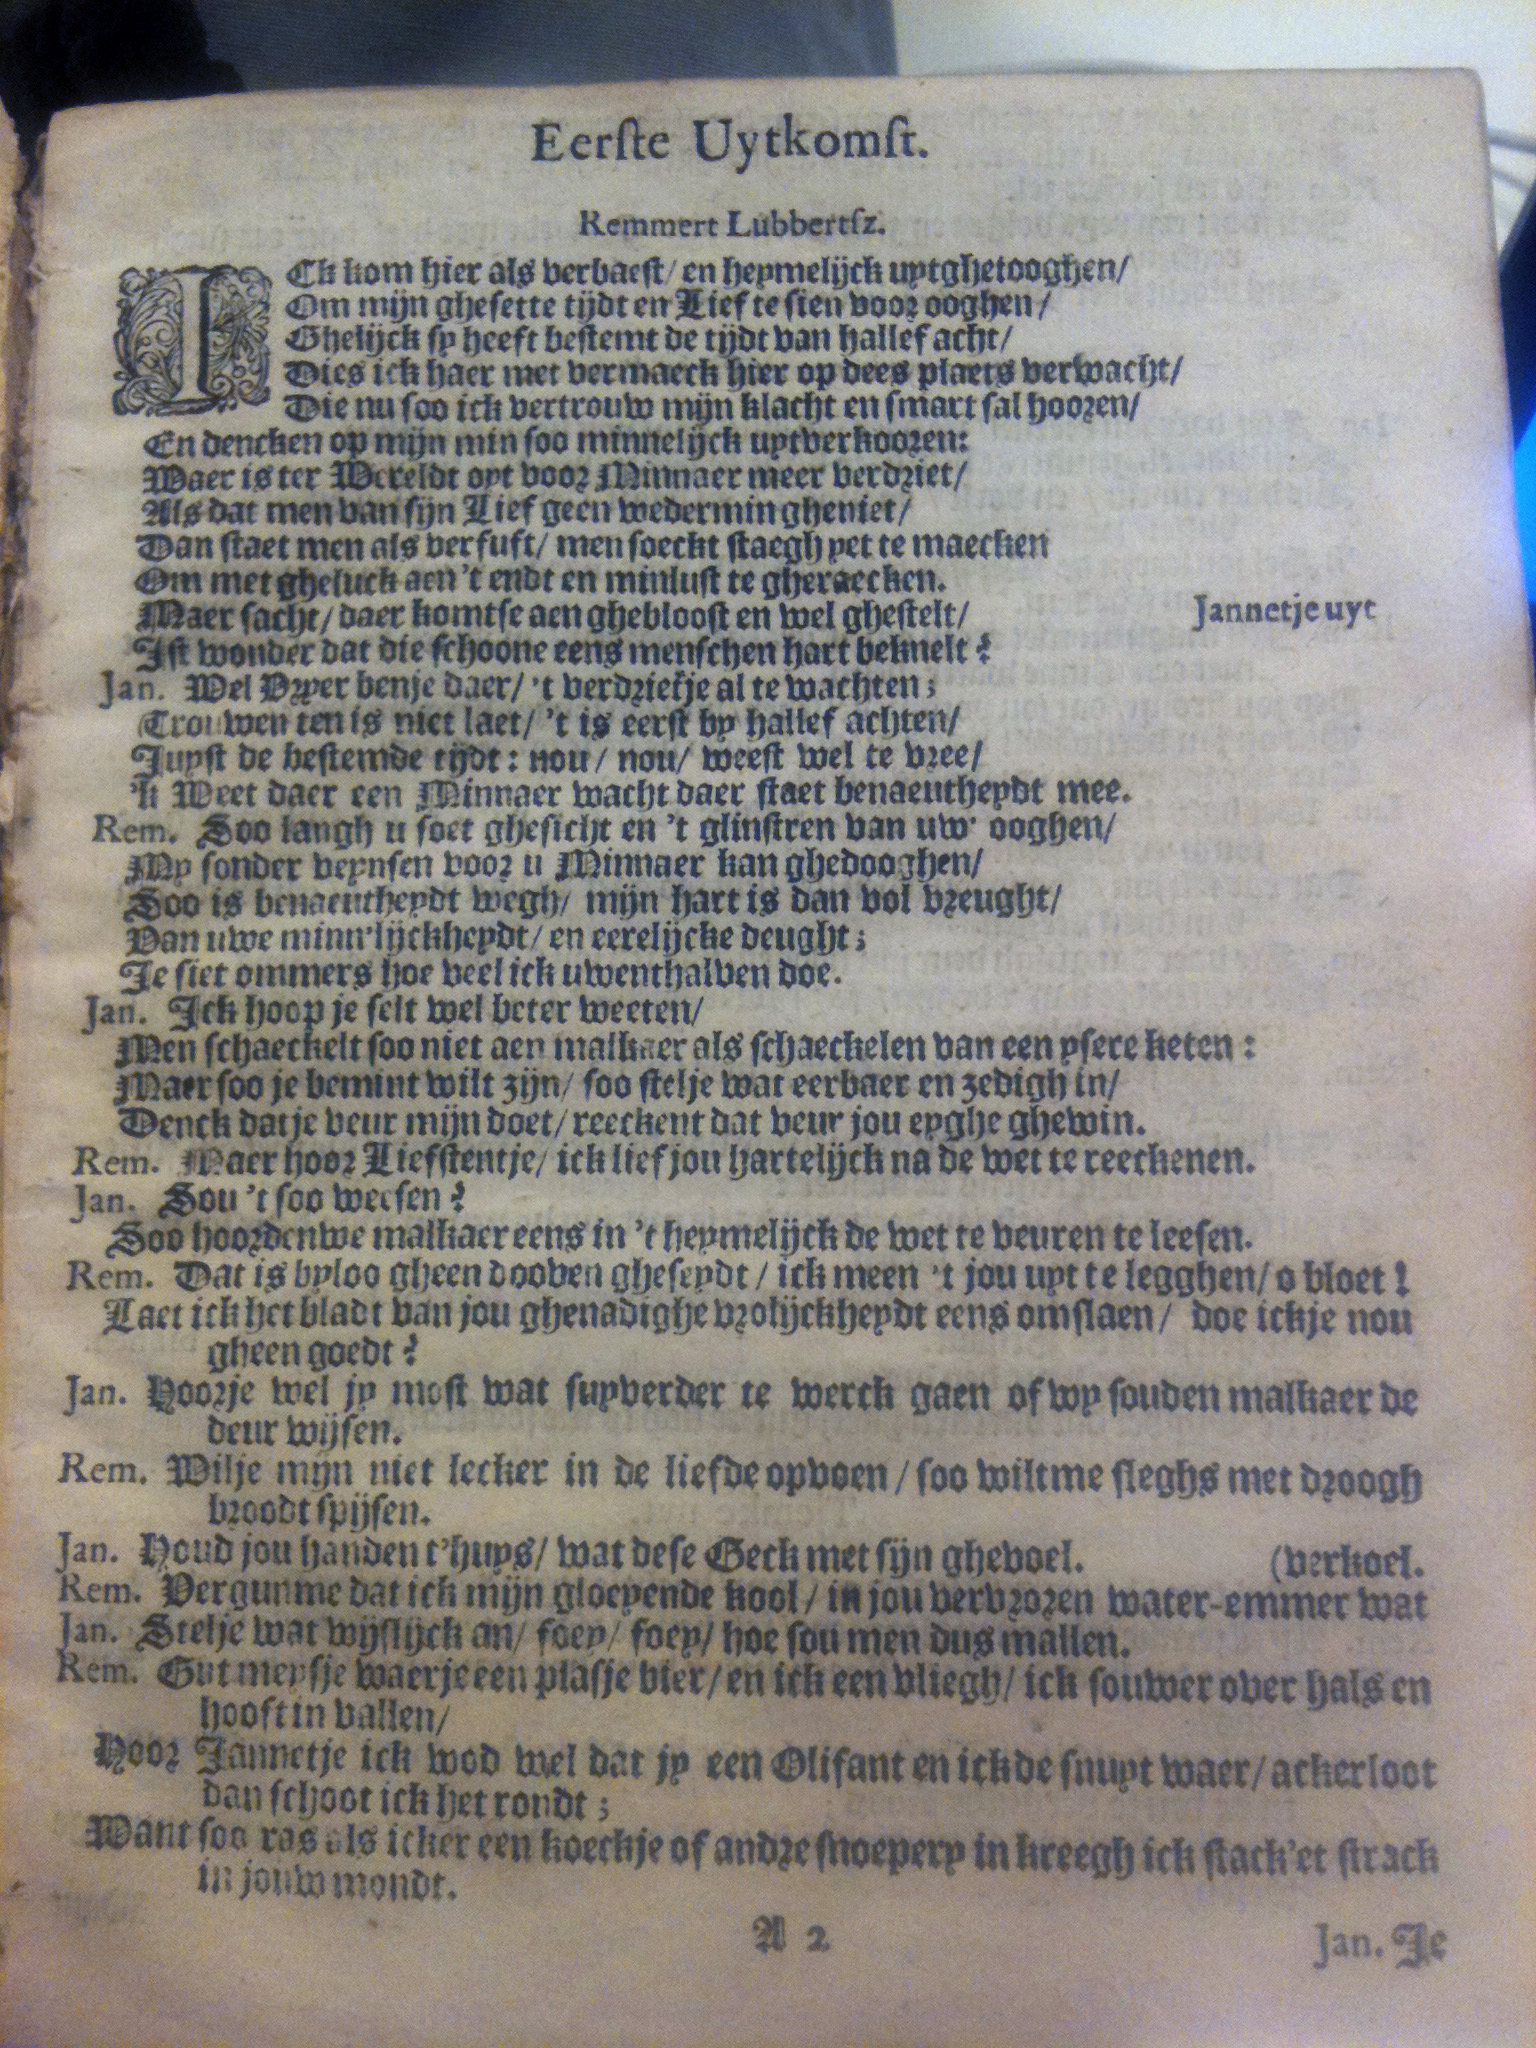 Eerste Uytkomst.
Remmert Lubbertsz.
ICk kom hier als verbaest/ en heymelijck uytghetooghen/
Om mijn ghesette tijdt en Lief te sien voor ooghen/
Ghelijck sy heeft bestemt de tijdt van hallef acht/
Dies ick haer met vermaeck hier op dees plaets verwacht/
Die nu soo ick vertrouw mijn klacht en smart sal hooren/
En dencken op mijn min soo minnelijck uytverkooren:
Waer is ter Wereldt oyt voor Minnaer meer verdriet/
Als dat men van sijn Lief geen wedermin gheniet/
Dan staet men als versuft/ men soeckt staegh yet te maecken
Om met gheluck aen 't endt en minlust te gheraecken.
Maer sacht/ daer komtse aen ghebloost en wel ghestelt/ Jannetje uyt
Ist wonder dat die schoone eens menschen hart beknelt?
Jan. Wel Vryer benje daer/ 't verdrietje al te wachten;
Trouwen ten is niet laet/ 't is eerst by hallef achten/
Juyst de bestemde tijdt: nou/ nou/ weest wel te vree/
'k Weet daer een Minnaer wacht daer staet benaeutheydt mee.
Rem. Soo langh u soet ghesicht en 't glinstren van uw' ooghen/
My sonder veynsen voor u Minnaer kan ghedooghen/
Soo is benaeutheydt wegh/ mijn hart is dan vol vreught/
Van uwe minn'lijckheydt/ en eerelijcke deught;
Je siet ommers hoe veel ick uwenthalven doe.
Jan. Ick hoop je selt wel beter weeten/
Men schaeckelt soo niet aen malkaer als schaeckelen van een ysere keten:
Maer soo je bemint wilt zijn/ soo stelje wat eerbaer en zedigh in/
Denck datje veur mijn doet/ reeckent dat veur jou eyghe ghewin.
Rem. Maer hoor Liefstentje/ ick lief jou hartelijck na de wet te reeckenen.
Jan. Sou 't soo weesen?
Soo hoordenwe malkaer eens in 't heymelijck de wet te veuren te leesen.
Rem. Dat is byloo gheen dooven gheseydt/ ick meen 't jou uyt te legghen/ o bloet!
Laet ick het bladt van jou ghenadighe vrolijckheydt eens omslaen/ doe ickje nou
gheen goedt?
Jan. Hoorje wel jy most wat suyverder te werck gaen of wy souden malkaer de
deur wijsen.
Rem. Wilje mijn niet lecker in de liefde opvoen/ soo wiltme sleghs met droogh
broodt spijsen.
Jan. Houd jou handen t'huys/ wat dese Geck met sijn ghevoel. (verkoel.
Rem. Vergunme dat ick mijn gloeyende kool/ in jou vervroren water-emmer wat
Jan. Stelje wat wijslijck an/ foey/ foey/ hoe sou men dus mallen.
Rem. Gut meysje waerje een plasje bier/ en ick een vliegh/ ick souwer over hals en
hooft in vallen/
Hoor Jannetje ick wod wel dat jy een Olifant en ick de snuyt waer/ ackerloot
dan schoot ick het rondt;
Want soo ras als icker een koeckje of andre snoepery in kreegh ick stack'et strack
in jouw mondt.
A 2
Jan. Je